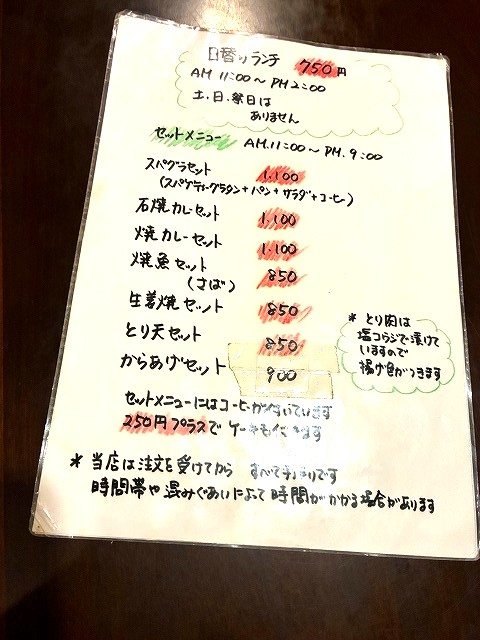 日替りランチ 750円
AM 11:00～PM2:00
土、日、祭日は
ありません
セットメニュー AM.11:00～PM.9:00
スパグラセット 1,100
(スパゲティーグラタン+パン+サラダ+コーヒー)
石焼カレーセット 1,100
焼カレーセット 1,100
焼魚セット 850
(さば)
生姜焼セット 850
とり天セット 850
からあげセット 900
＊ とり肉は
塩コウジで漬けて
いますので
揚げ色がつきます
セットメニューにはコーヒーがついています
250円プラスで ケーキも付きます
＊ 当店は注文を受けてから すべて手作りです
時間帯や混みぐあいによって時間がかかる場合があります